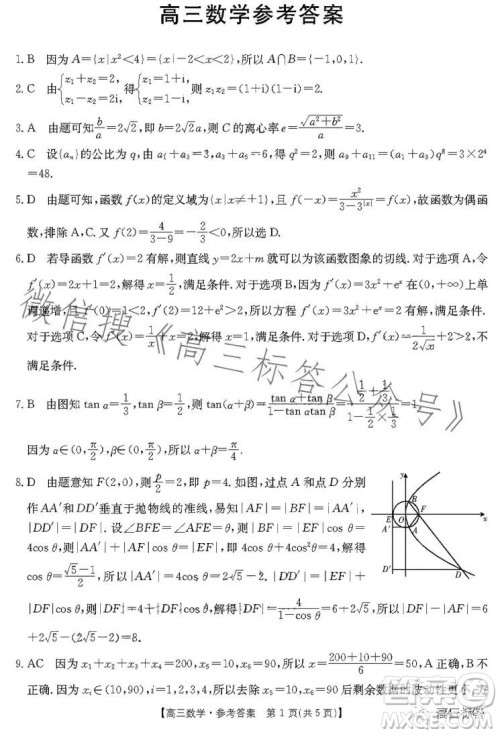 高三数学参考答案
1. B 因为 A={x|x²<4}={x|-2<x<2},所以 A∩B={-1,0,1}.
2. C 由{z₁+z₂=2, z₁-z₂=2i, 得{z₁=1+i, z₂=1-i, 则 z₁z₂=(1+i)(1-i)=2.
3. A 由题可知 b/a=2√2,即 b=2√2a,则 C 的离心率 e=√(a²+b²)/a=3.
4. C 设{aₙ}的公比为 q,由 a₁+a₃=3,a₃+a₅=6,得 q²=2,则 a₉+a₁₁=(a₁+a₃)q⁸=3×2⁴
=48.
5. D 由题可知,函数 f(x)的定义域为{x|x≠±1},且 f(-x)=x²/(3-3^|x|)=f(x),故 f(x)为偶函
数,排除 A,C.又 f(2)=4/(3-9)=-2/3<0,所以选 D.
6. D 若导函数 f′(x)=2 有解,则直线 y=2x+m 就可以为该函数图象的切线.对于选项 A,令
f′(x)=2x+1=2,解得 x=1/2,满足条件.对于选项 B,f′(x)=3x²+eˣ 在(0,+∞)上单
调递增,且 f′(0)=1<2,f′(2)=12+e²>2,所以方程 f′(x)=3x²+eˣ 有解,满足条件.
对于选项 C,令 f′(x)=
满足条件.
7. B 由图知 tan α=1/3,tan β=1/2,则 tan(α+β)=(tan α+tan β)/(1-tan αtan β)=(1/2+1/3)/(1-1/2×1/3)=1
因为 α∈(0,π/2),β∈(0,π/2),所以 α+β=π/4.
8. D 由题意知 F(2,0),则 p/2=2,即 p=4.如图,过点 A 和点 D 分别
作 AA′和 DD′垂直于抛物线的准线,易知|AF|=|BF|=|AA′|,
|DD′|=|DF|.设∠BFE=∠AFE=θ,则|AF|=|BF|=|EF|cos θ=
4cos θ,则|AA′|+|AF|cos θ=|EF|=4,即 4cos θ+4cos²θ=4,解得
cos θ=(√5-1)/2,所以|AA′|=4cos θ=2√5-2.又|DD′|=|EF|+
|DF|cos θ,则|DF|=|EF|+|DF|cos θ,解得|DF|=4/(1-cos θ)=6+2√5,所以|DF|-|AF|=6
+2√5-(2√5-2)=8.
9. AC 因为 x₁+x₂+x₃+x₄=200,x₅=10,x₆=90,所以 x̄=(200+10+90)/6=50,
误.因为 xᵢ∈(10,90),i=1,2,3,4,所以去掉 x₅=10,x₆=90 后剩余数据的波动性更小,方
y
B
E O F x
A′ A
D′ D
【高三数学·参考答案 第 1 页(共 5 页)】
微信搜《高三标答公众号》